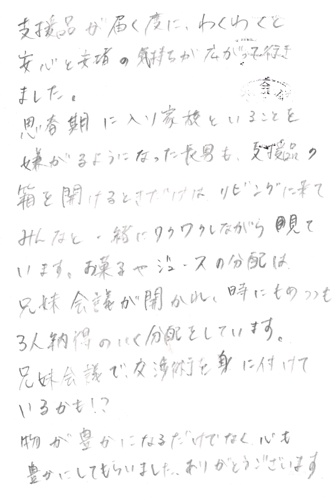 支援品が届く度に、わくわくと
安心と安堵の気持ちが広がって行き
ました。
思春期に入り家族といることを
嫌がるようになった長男も、支援品の
箱を開けるときだけは リビングに来て
みんなと一緒にワクワクしながら 見て
います。お菓子やジュースの分配は
兄妹会議が開かれ、時にもめつつも
3人納得のいく分配をしています。
兄妹会議で、交渉術を身に付けて
いるかも!?
物が豊かになるだけでなく、心も
豊かにしてもらいました。ありがとうございます